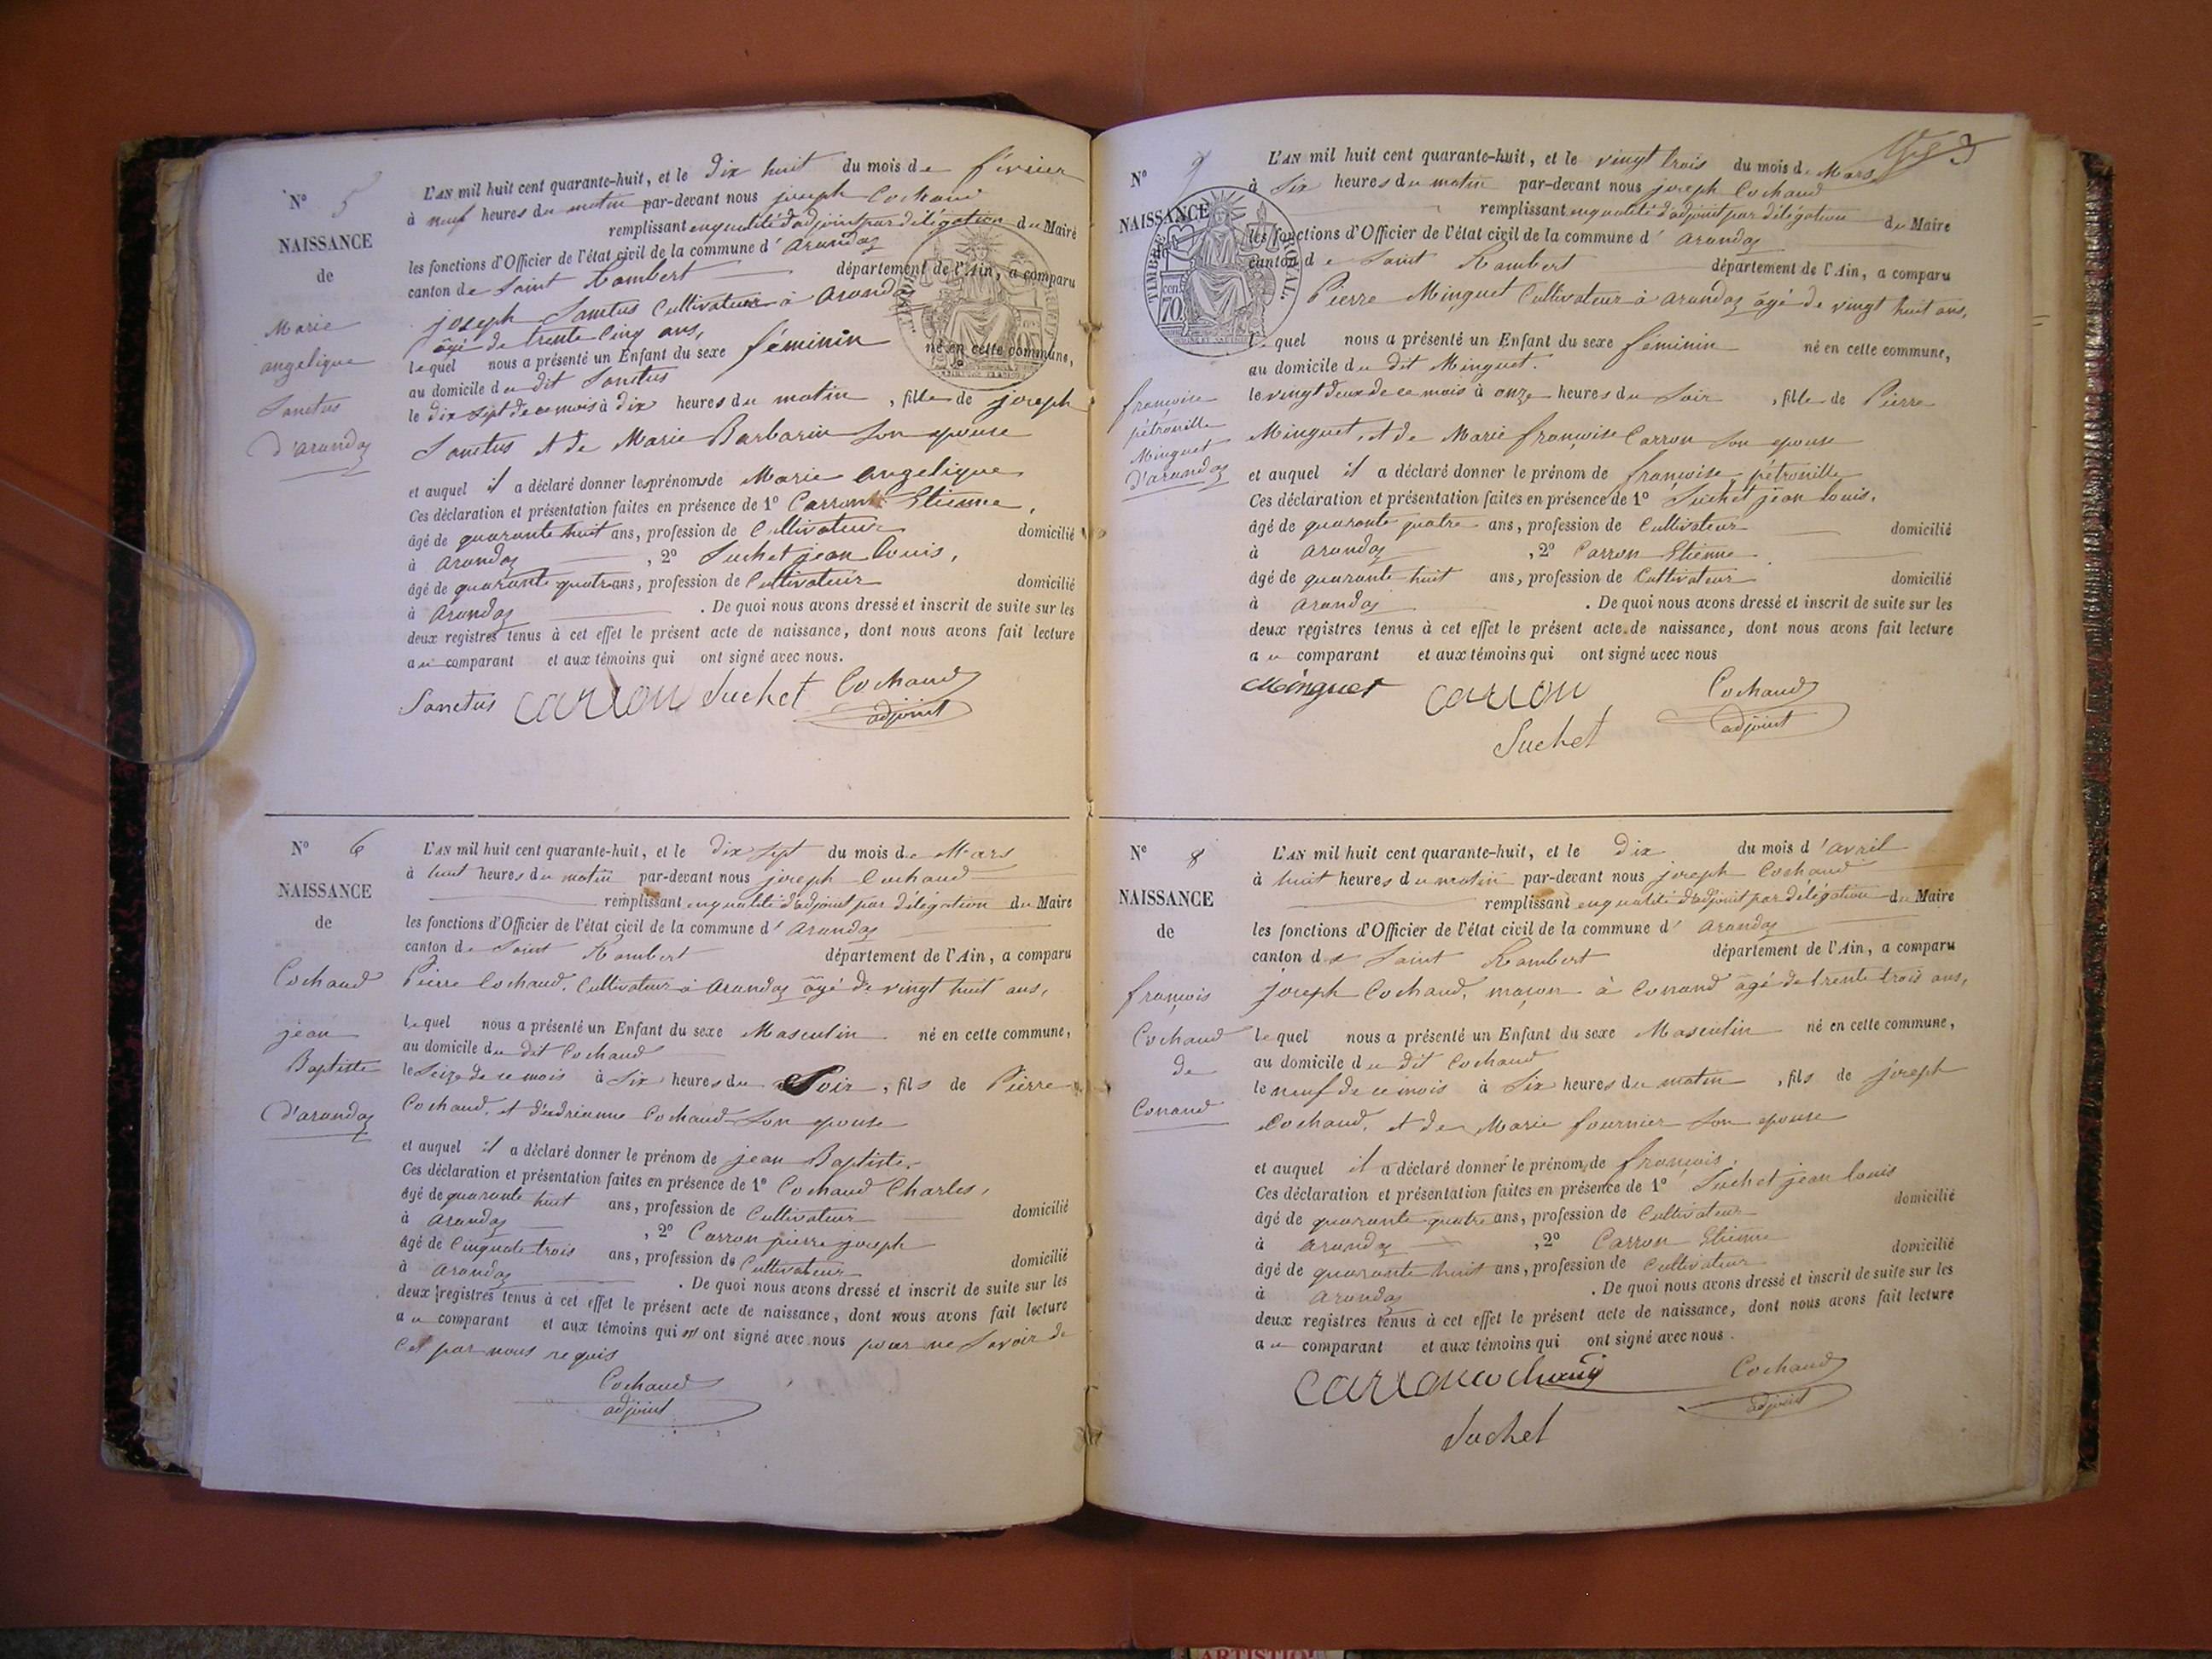 N° 5
NAISSANCE
de
Marie
angelique
Sanctus
d'arandas
L'AN mil huit cent quarante-huit, et le dix huit du mois de février
à neuf heures du matin par-devant nous joseph Cochaud
remplissant en qualité d'adjoint par délégation du Maire
les fonctions d'Officier de l'état civil de la commune d' arandas
canton de Saint Rambert département de l'Ain, a comparu
joseph Sanctus Cultivateur à arandas
âgé de trente cinq ans,
lequel nous a présenté un Enfant du sexe féminin né en cette commune,
au domicile du dit Sanctus
le dix sept de ce mois à dix heures du matin, fille de joseph
Sanctus et de Marie Barbarin son epouse
et auquel il a déclaré donner les prénoms de Marie angelique
Ces déclaration et présentation faites en présence de 1° Carron Etienne,
âgé de quarante huit ans, profession de Cultivateur domicilié
à arandas, 2° Suchet jean louis,
âgé de quarante quatre ans, profession de Cultivateur domicilié
à arandas. De quoi nous avons dressé et inscrit de suite sur les
deux registres tenus à cet effet le présent acte de naissance, dont nous avons fait lecture
au comparant et aux témoins qui ont signé avec nous.
Sanctus carron Suchet Cochaud
adjoint
N° 6
NAISSANCE
de
Cochaud
jean
Baptiste
d'arandas
L'AN mil huit cent quarante-huit, et le dix sept du mois de Mars
à huit heures du matin par-devant nous joseph Cochaud
remplissant en qualité d'adjoint par délégation du Maire
les fonctions d'Officier de l'état civil de la commune d' arandas
canton de Saint Rambert département de l'Ain, a comparu
Pierre Cochaud, Cultivateur à arandas âgé de vingt huit ans,
lequel nous a présenté un Enfant du sexe Masculin né en cette commune,
au domicile du dit Cochaud
le Seize de ce mois à Six heures du Soir, fils de Pierre
Cochaud, et d'adrianne Cochaud son epouse
et auquel il a déclaré donner le prénom de jean Baptiste,
Ces déclaration et présentation faites en présence de 1° Cochaud Charles,
âgé de quarante huit ans, profession de Cultivateur domicilié
à arandas, 2° Carron pierre joseph
âgé de Cinquate trois ans, profession de Cultivateur domicilié
à arandas. De quoi nous avons dressé et inscrit de suite sur les
deux registres tenus à cet effet le présent acte de naissance, dont nous avons fait lecture
au comparant et aux témoins qui n'ont signé avec nous pour ne Savoir de
Cet par nous requis
Cochaud
adjoint
N° 7
NAISSANCE
de
françoise
pétronille
Minguet
d'arandas
TIMBRE ROYAL.
cent 70
L'AN mil huit cent quarante-huit, et le vingt trois du mois de Mars
à Six heures du matin par-devant nous joseph Cochaud
remplissant en qualité d'adjoint par délégation du Maire
les fonctions d'Officier de l'état civil de la commune d' arandas
canton de Saint Rambert département de l'Ain, a comparu
Pierre Minguet Cultivateur à arandas âgé de vingt huit ans,
lequel nous a présenté un Enfant du sexe féminin né en cette commune,
au domicile du dit Minguet.
le vingt deux de ce mois à onze heures du Soir, fille de Pierre
Minguet, et de Marie françoise Carron son epouse
et auquel il a déclaré donner le prénom de françoise pétronille
Ces déclaration et présentation faites en présence de 1° Suchet jean louis,
âgé de quarante quatre ans, profession de Cultivateur domicilié
à arandas, 2° Carron Etienne
âgé de quarante huit ans, profession de Cultivateur domicilié
à arandas. De quoi nous avons dressé et inscrit de suite sur les
deux registres tenus à cet effet le présent acte de naissance, dont nous avons fait lecture
au comparant et aux témoins qui ont signé avec nous
Minguet carron Cochaud
adjoint
Suchet
N° 8
NAISSANCE
de
françois
Cochaud
de
Conand
L'AN mil huit cent quarante-huit, et le dix du mois d'avril
à huit heures du matin par-devant nous joseph Cochaud
remplissant en qualité d'adjoint par délégation du Maire
les fonctions d'Officier de l'état civil de la commune d' arandas
canton de Saint Rambert département de l'Ain, a comparu
joseph Cochaud, maçon à Conand âgé de trente trois ans,
lequel nous a présenté un Enfant du sexe Masculin né en cette commune,
au domicile du dit Cochaud
le neuf de ce mois à Six heures du matin, fils de joseph
Cochaud, et de Marie fournier son epouse
et auquel il a déclaré donner le prénom de françois,
Ces déclaration et présentation faites en présence de 1° Suchet jean louis
âgé de quarante quatre ans, profession de Cultivateur domicilié
à arandas, 2° Carron Etienne
âgé de quarante huit ans, profession de Cultivateur domicilié
à arandas. De quoi nous avons dressé et inscrit de suite sur les
deux registres tenus à cet effet le présent acte de naissance, dont nous avons fait lecture
au comparant et aux témoins qui ont signé avec nous.
carron cochaud Cochaud
adjoint
Suchet